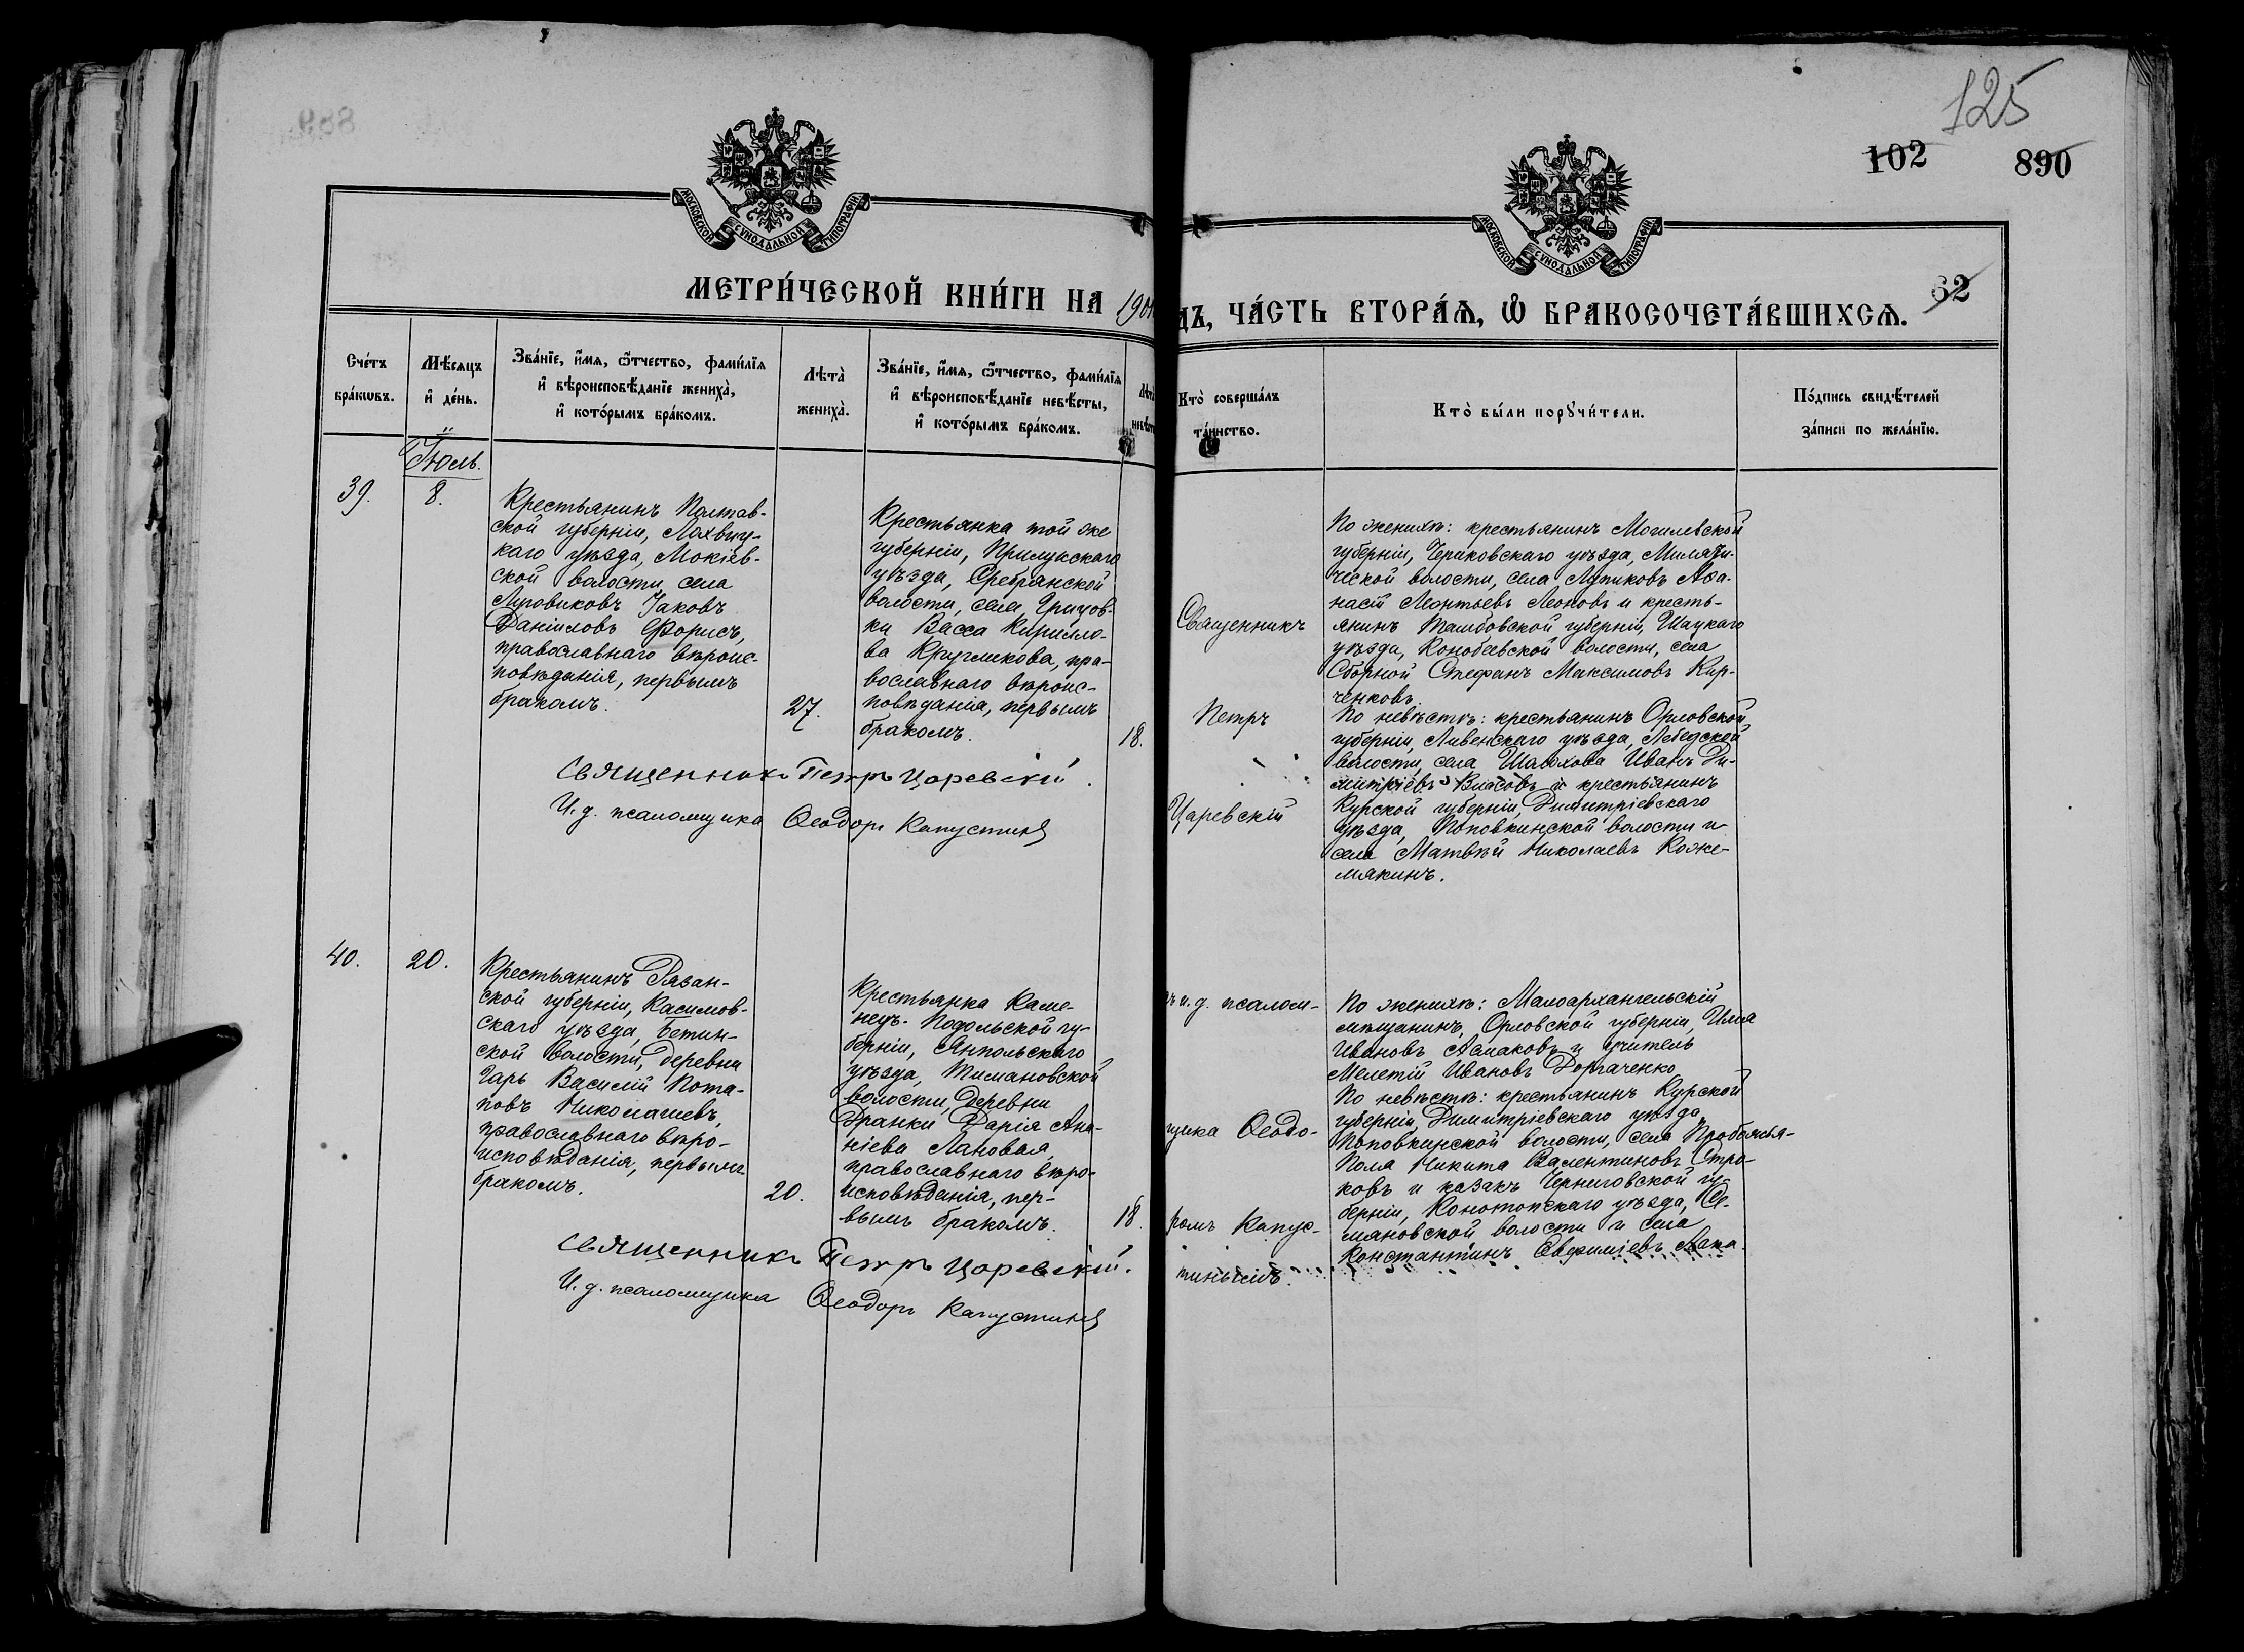 125
102
890
МОСКОВСКОЙ СѴНОДАЛЬНОЙ ТИПОГРАФІИ
МОСКОВСКОЙ СѴНОДАЛЬНОЙ ТИПОГРАФІИ
62
МЕТРИ́ЧЕСКОЙ КНИ́ГИ НА 190
ДЪ, ЧА́СТЬ ВТОРА́Ѧ, Ѽ БРАКОСОЧЕТА́ВШИХСѦ.
Сче́тъ
бра́кѡвъ.
Мѣ́сяцъ
и҆ де́нь.
Зва́нїе, и҆́мя, ѻ҆́тчество, фами́лїя
и҆ вѣроисповѣ́данїе жениха̀,
и҆ кото́рымъ бра́комъ.
Лѣта̀
жениха̀.
Зва́нїе, и҆́мя, ѻ҆́тчество, фами́лїя
и҆ вѣроисповѣ́данїе невѣ́сты,
и҆ кото́рымъ бра́комъ.
Кто̀ соверша́лъ
та́инство.
Кто̀ бы́ли порꙋчи́тели.
По́дпись свидѣ́телей
за́писи по жела́нїю.
Іюль.
39.
8.
Крестьянинъ Полтав-
ской губерніи, Лохвиц-
каго уѣзда, Мокіев-
ской волости, села
Луговиковъ Іаковъ
Даніиловъ Форисъ,
православнаго вѣроис-
повѣданія, первымъ
бракомъ.
27.
Крестьянка той же
губерніи, Прилукскаго
уѣзда, Сребрянской
волости, села Грицов-
ки Васса Кирилло-
ва Кругликова, пра-
вославнаго вѣроис-
повѣданія, первымъ
бракомъ.
18.
Священникъ
Петръ
Царевскій
По женихѣ: крестьянинъ Могилевской
губерніи, Чериковскаго уѣзда,
ческой волости, села Лупиковъ Аѳа-
насій Леонтьевъ Леоновъ и кресть-
янинъ Тамбовской губерніи, Шацкаго
уѣзда, Конобеевской волости, села
Сборной Стефанъ Максимовъ Кир-
ченковъ
По невѣстѣ: крестьянинъ Орловской
губерніи, Ливенскаго уѣзда, Лебедской
волости, села Шалохова Иванъ Ди-
митріевъ Власовъ и крестьянинъ
Курской губерніи, Димитріевскаго
уѣзда, Поповкинской волости и
села Матвѣй Николаевъ Коже-
мякинъ.
Священникъ Петръ Царевскій.
И. д. псаломщика Ѳеодоръ Капустинъ
40.
20.
Крестьянинъ Рязан-
ской губерніи, Касимов-
скаго уѣзда, Бетин-
ской волости, деревни
Гарь Василій Пота-
повъ Николашевъ,
православнаго вѣро-
исповѣданія, первымъ
бракомъ.
20.
Крестьянка Каме-
нецъ-Подольской гу-
берніи, Ямпольскаго
уѣзда, Тимановской
волости, деревни
Дранки Дарія Ана-
ніева Лановая,
православнаго вѣро-
исповѣданія, пер-
вымъ бракомъ.
18.
и. д. псалом-
щика Ѳеодо-
ромъ Капус-
тинымъ.
По женихѣ: Малоархангельскій
мѣщанинъ, Орловской губерніи, Илія
Ивановъ Асмаковъ и учитель
Мелетій Ивановъ Доргаченко
По невѣстѣ: крестьянинъ Курской
губерніи, Димитріевскаго уѣзда,
Поповкинской волости, села Пробожья-
Поля Никита Валентиновъ Стро-
ковъ и казакъ Черниговской гу-
берніи, Конотопскаго уѣзда,
мяновской волости и села
Константинъ Евѳиміевъ
Священникъ Петръ Царевскій.
И. д. псаломщика Ѳеодоръ Капустинъ